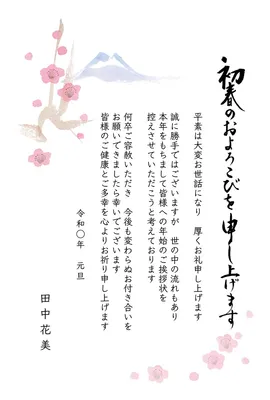 初春のおよろこびを申し上げます
平素は大変お世話になり　厚くお礼申し上げます
誠に勝手ではございますが　世の中の流れもあり
本年をもちまして皆様への年始のご挨拶状を
控えさせていただこうと考えております
何卒ご容赦いただき　今後も変わらぬお付き合いを
お願いできましたら幸いでございます
皆様のご健康とご多幸を心よりお祈り申し上げます
令和〇年　元旦
田中花美